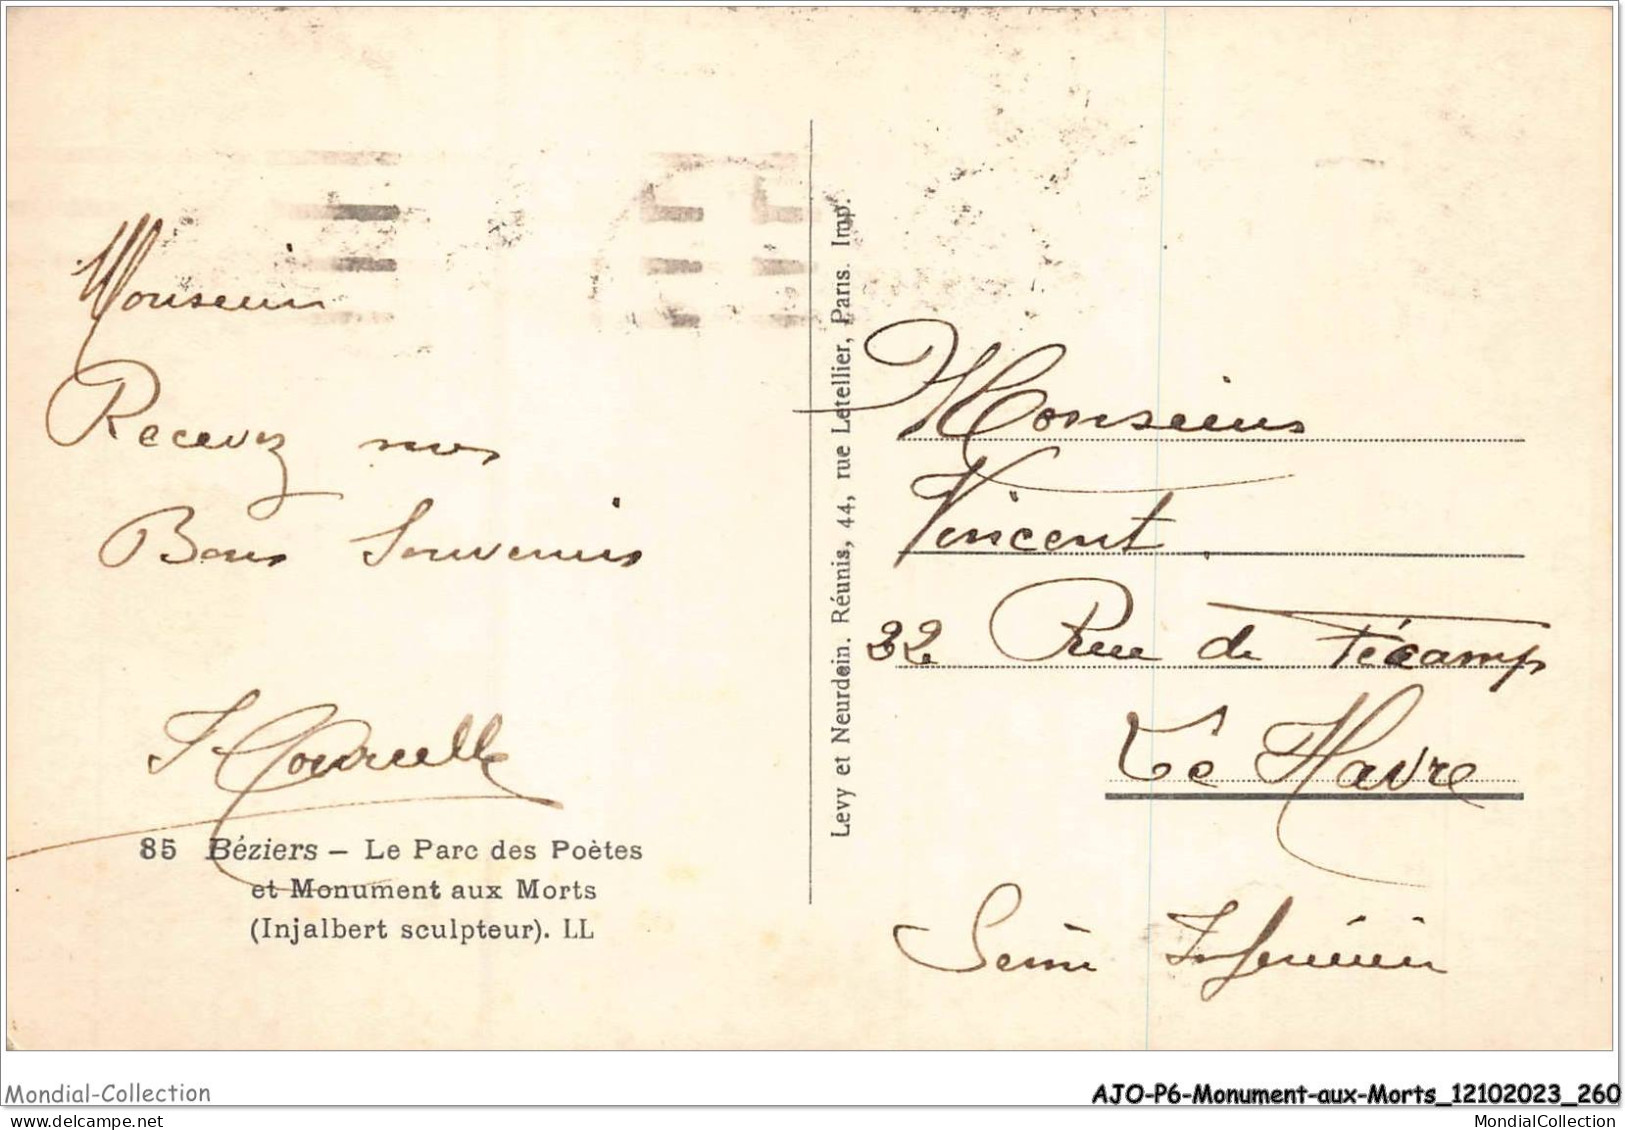 Monsieur
Recevez nos
Bons Souvenirs
J Courcelle
85 Béziers – Le Parc des Poètes
et Monument aux Morts
(Injalbert sculpteur). LL
Levy et Neurdein. Réunis, 44, rue Letellier, Paris. Imp.
Monsieur
Vincent
32 Rue de Fécamp
Le Havre
Seine Inférieure
Mondial-Collection
AJO-P6-Monument-aux-Morts_12102023_260
delcampe.net
MondialCollection